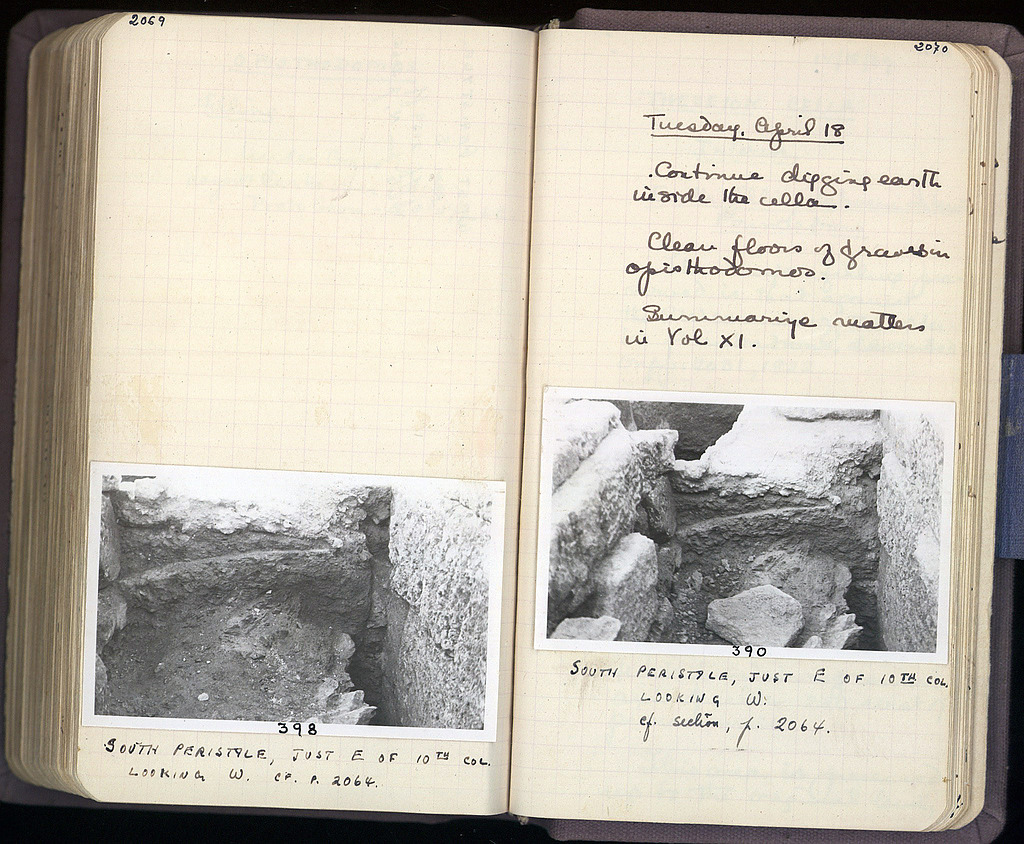 2069
398
SOUTH PERISTYLE, JUST E OF 10TH COL.
LOOKING W. CF. P. 2064.
2070
Tuesday, April 18
Continue digging earth
inside the cella.
Clean floors of graves in
opisthodomos.
Summarize matters
in Vol XI.
390
SOUTH PERISTYLE, JUST E OF 10TH COL.
LOOKING W.
cf. section, p. 2064.